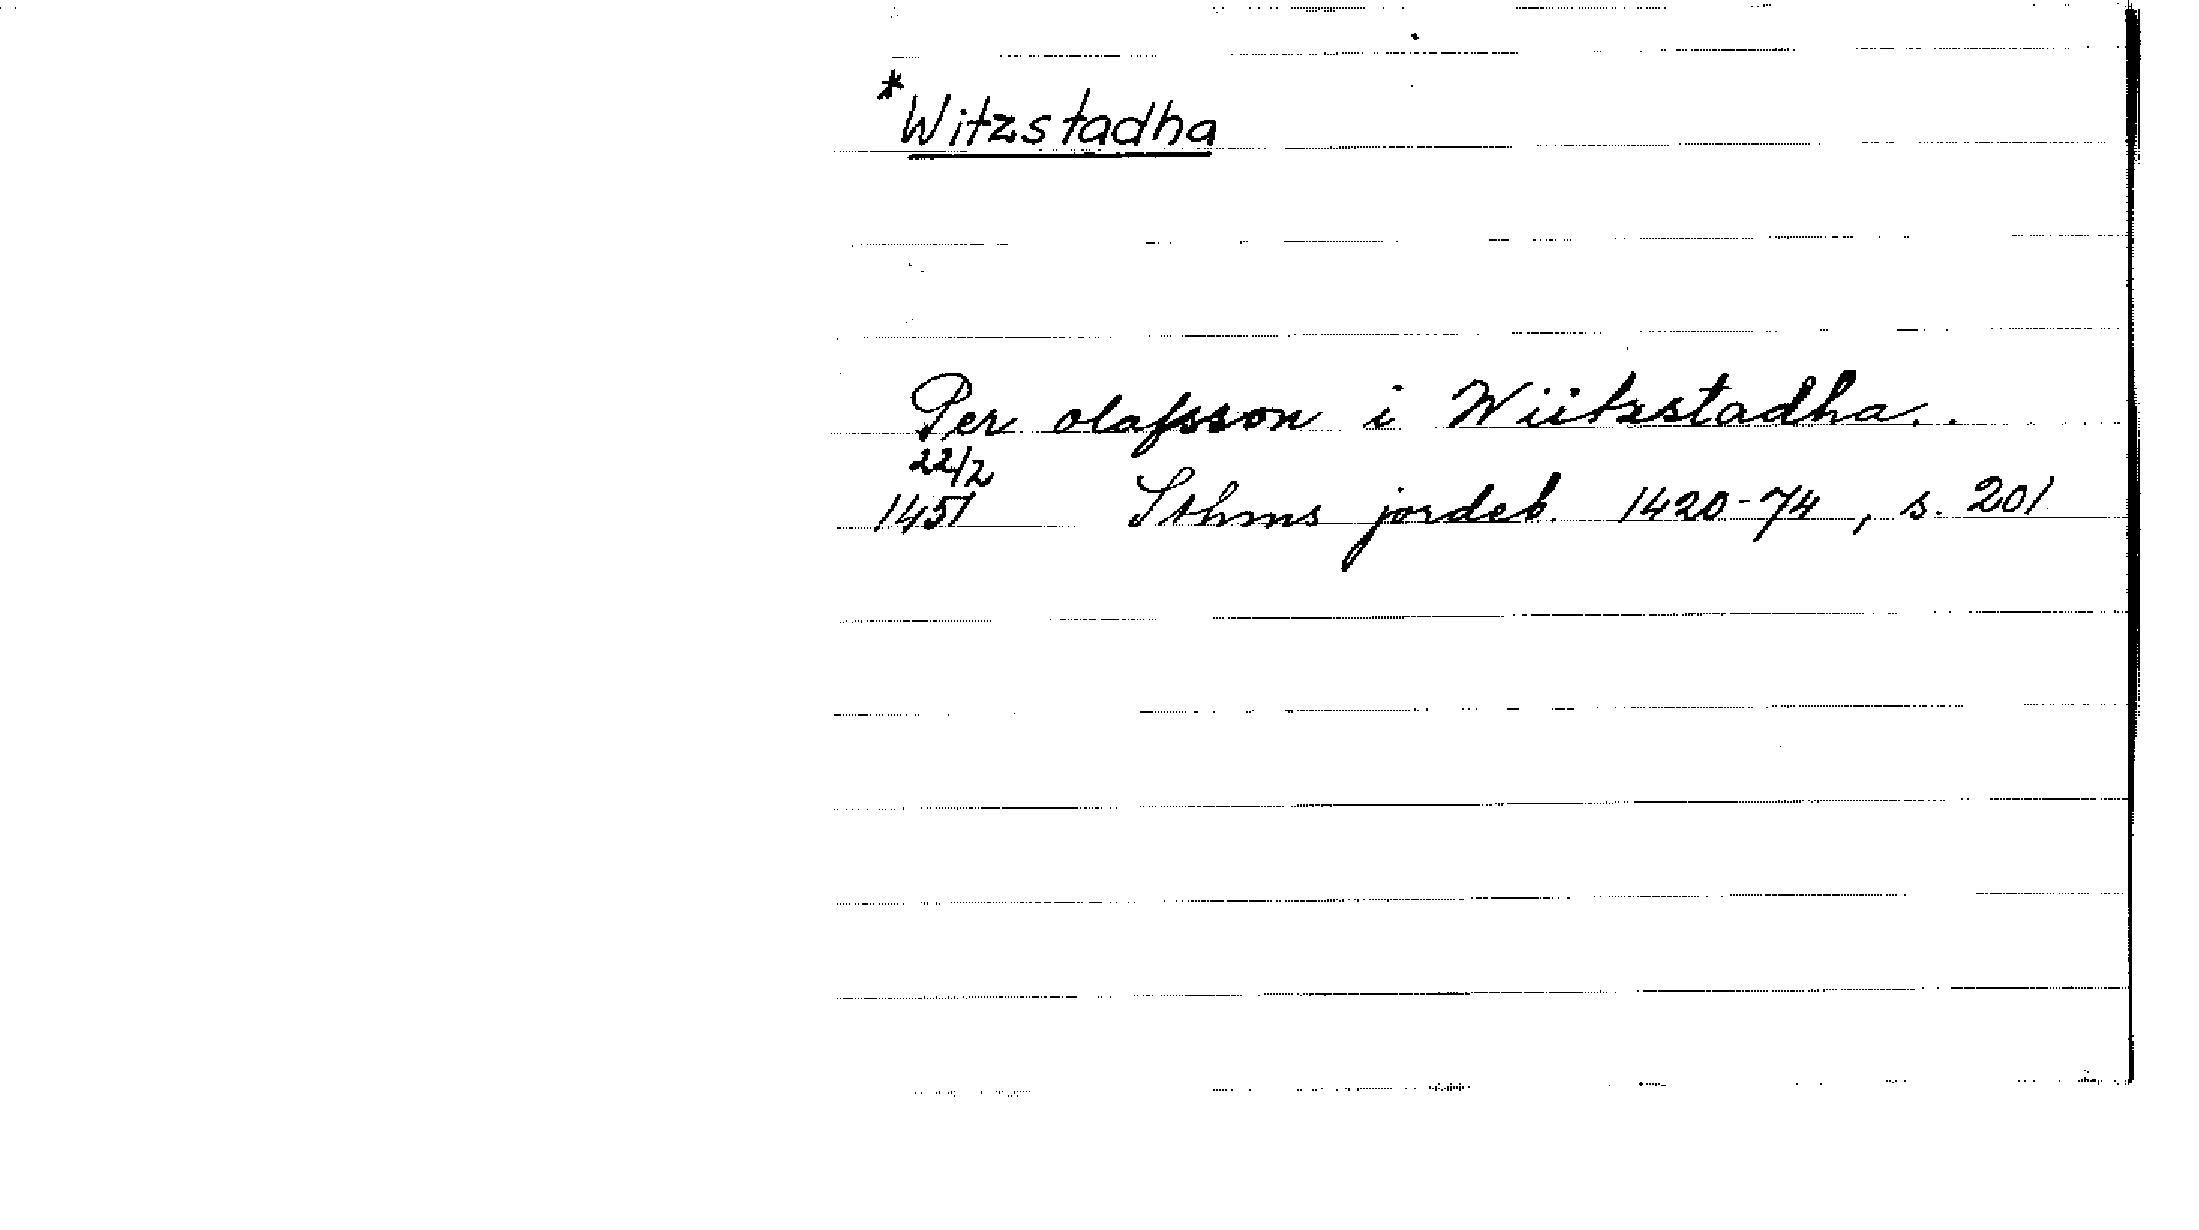 *Witzstadha
Per olafsson i Wiitzstadha..
22/2
1451 Sthms jordeb. 1420-74, s. 201